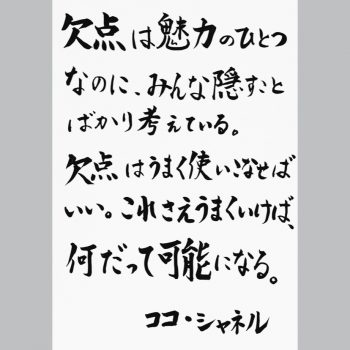 欠点は魅力のひとつ
なのに、みんな隠すこと
ばかり考えている。
欠点はうまく使いこなせば
いい。これさえうまくいけば、
何だって可能になる。
ココ・シャネル